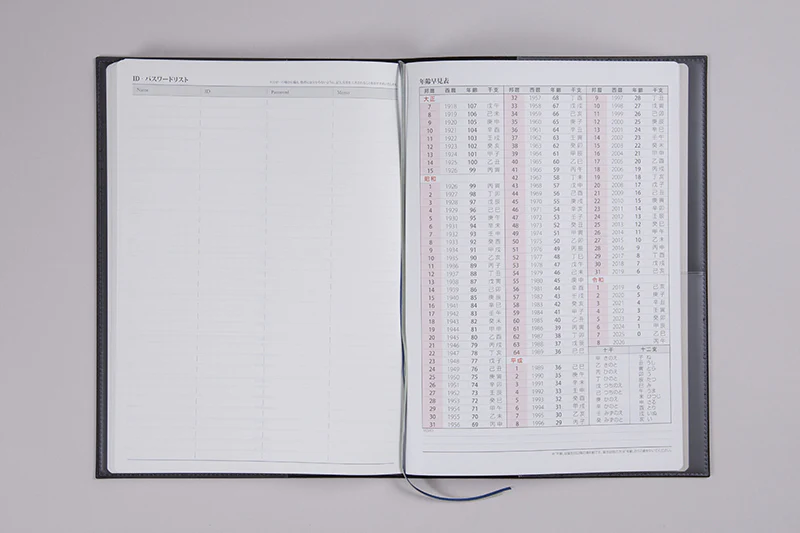 ID・パスワードリスト
Name ID Password
年齢早見表
邦暦 西暦 年齢 干支 邦暦 西暦 年齢 干支 邦暦 西暦 年齢 干支
大正
7 1918 107 戊午
8 1919 106 己未
9 1920 105 庚申
10 1921 104 辛酉
11 1922 103 壬戌
12 1923 102 癸亥
13 1924 101 甲子
14 1925 100 乙丑
15 1926 99 丙寅
昭和
1 1926 99 丙寅
2 1927 98 丁卯
3 1928 97 戊辰
4 1929 96 己巳
5 1930 95 庚午
6 1931 94 辛未
7 1932 93 壬申
8 1933 92 癸酉
9 1934 91 甲戌
10 1935 90 乙亥
11 1936 89 丙子
12 1937 88 丁丑
13 1938 87 戊寅
14 1939 86 己卯
15 1940 85 庚辰
16 1941 84 辛巳
17 1942 83 壬午
18 1943 82 癸未
19 1944 81 甲申
20 1945 80 乙酉
21 1946 79 丙戌
22 1947 78 丁亥
23 1948 77 戊子
24 1949 76 己丑
25 1950 75 庚寅
26 1951 74 辛卯
27 1952 73 壬辰
28 1953 72 癸巳
29 1954 71 甲午
30 1955 70 乙未
31 1956 69 丙申
32 1957 68 丁酉
33 1958 67 戊戌
34 1959 66 己亥
35 1960 65 庚子
36 1961 64 辛丑
37 1962 63 壬寅
38 1963 62 癸卯
39 1964 61 甲辰
40 1965 60 乙巳
41 1966 59 丙午
42 1967 58 丁未
43 1968 57 戊申
44 1969 56 己酉
45 1970 55 庚戌
46 1971 54 辛亥
47 1972 53 壬子
48 1973 52 癸丑
49 1974 51 甲寅
50 1975 50 乙卯
51 1976 49 丙辰
52 1977 48 丁巳
53 1978 47 戊午
54 1979 46 己未
55 1980 45 庚申
56 1981 44 辛酉
57 1982 43 壬戌
58 1983 42 癸亥
59 1984 41 甲子
60 1985 40 乙丑
61 1986 39 丙寅
62 1987 38 丁卯
63 1988 37 戊辰
64 1989 36 己巳
平成
1 1989 36 己巳
2 1990 35 庚午
3 1991 34 辛未
4 1992 33 壬申
5 1993 32 癸酉
6 1994 31 甲戌
7 1995 30 乙亥
8 1996 29 丙子
9 1997 28 丁丑
10 1998 27 戊寅
11 1999 26 己卯
12 2000 25 庚辰
13 2001 24 辛巳
14 2002 23 壬午
15 2003 22 癸未
16 2004 21 甲申
17 2005 20 乙酉
18 2006 19 丙戌
19 2007 18 丁亥
20 2008 17 戊子
21 2009 16 己丑
22 2010 15 庚寅
23 2011 14 辛卯
24 2012 13 壬辰
25 2013 12 癸巳
26 2014 11 甲午
27 2015 10 乙未
28 2016 9 丙申
29 2017 8 丁酉
30 2018 7 戊戌
31 2019 6 己亥
令和
1 2019 6 己亥
2 2020 5 庚子
3 2021 4 辛丑
4 2022 3 壬寅
5 2023 2 癸卯
6 2024 1 甲辰
7 2025 0 乙巳
8 2026 丙午
十干 十二支
甲 きのえ 子 ね
乙 きのと 丑 うし
丙 ひのえ 寅 とら
丁 ひのと 卯 う
戊 つちのえ 辰 たつ
己 つちのと 巳 み
庚 かのえ 午 うま
辛 かのと 未 ひつじ
壬 みずのえ 申 さる
癸 みずのと 酉 とり
戌 いぬ
亥 い